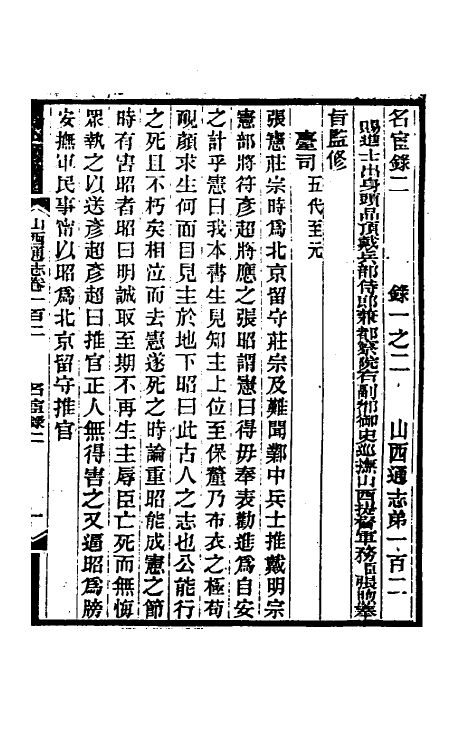 名宦錄二　錄一之二　山西通志弟一百二
賜進士出身頭品頂戴兵部侍郎兼都察院右副都御史巡撫山西提督軍務臣張煦奉
旨監修
臺司五代至元
張憲莊宗時爲北京留守莊宗及難聞鄴中兵士推戴明宗
憲部將符彥超將應之張昭謂憲曰得毋奉表勸進爲自安
之計乎憲曰我本書生見知主上位至保釐乃布衣之極苟
靦顏求生何面目見主於地下昭曰此古人之志也公能行
之死且不朽矣相泣而去憲遂死之時論重昭能成憲之節
時有害昭者昭曰明誠取至期不再生主辱臣亡死而無悔
眾執之以送彥超彥超曰推官正人無得害之又逼昭爲牓
安撫軍民事甯以昭爲北京留守推官
山西通志卷一百二　名宦錄二　一